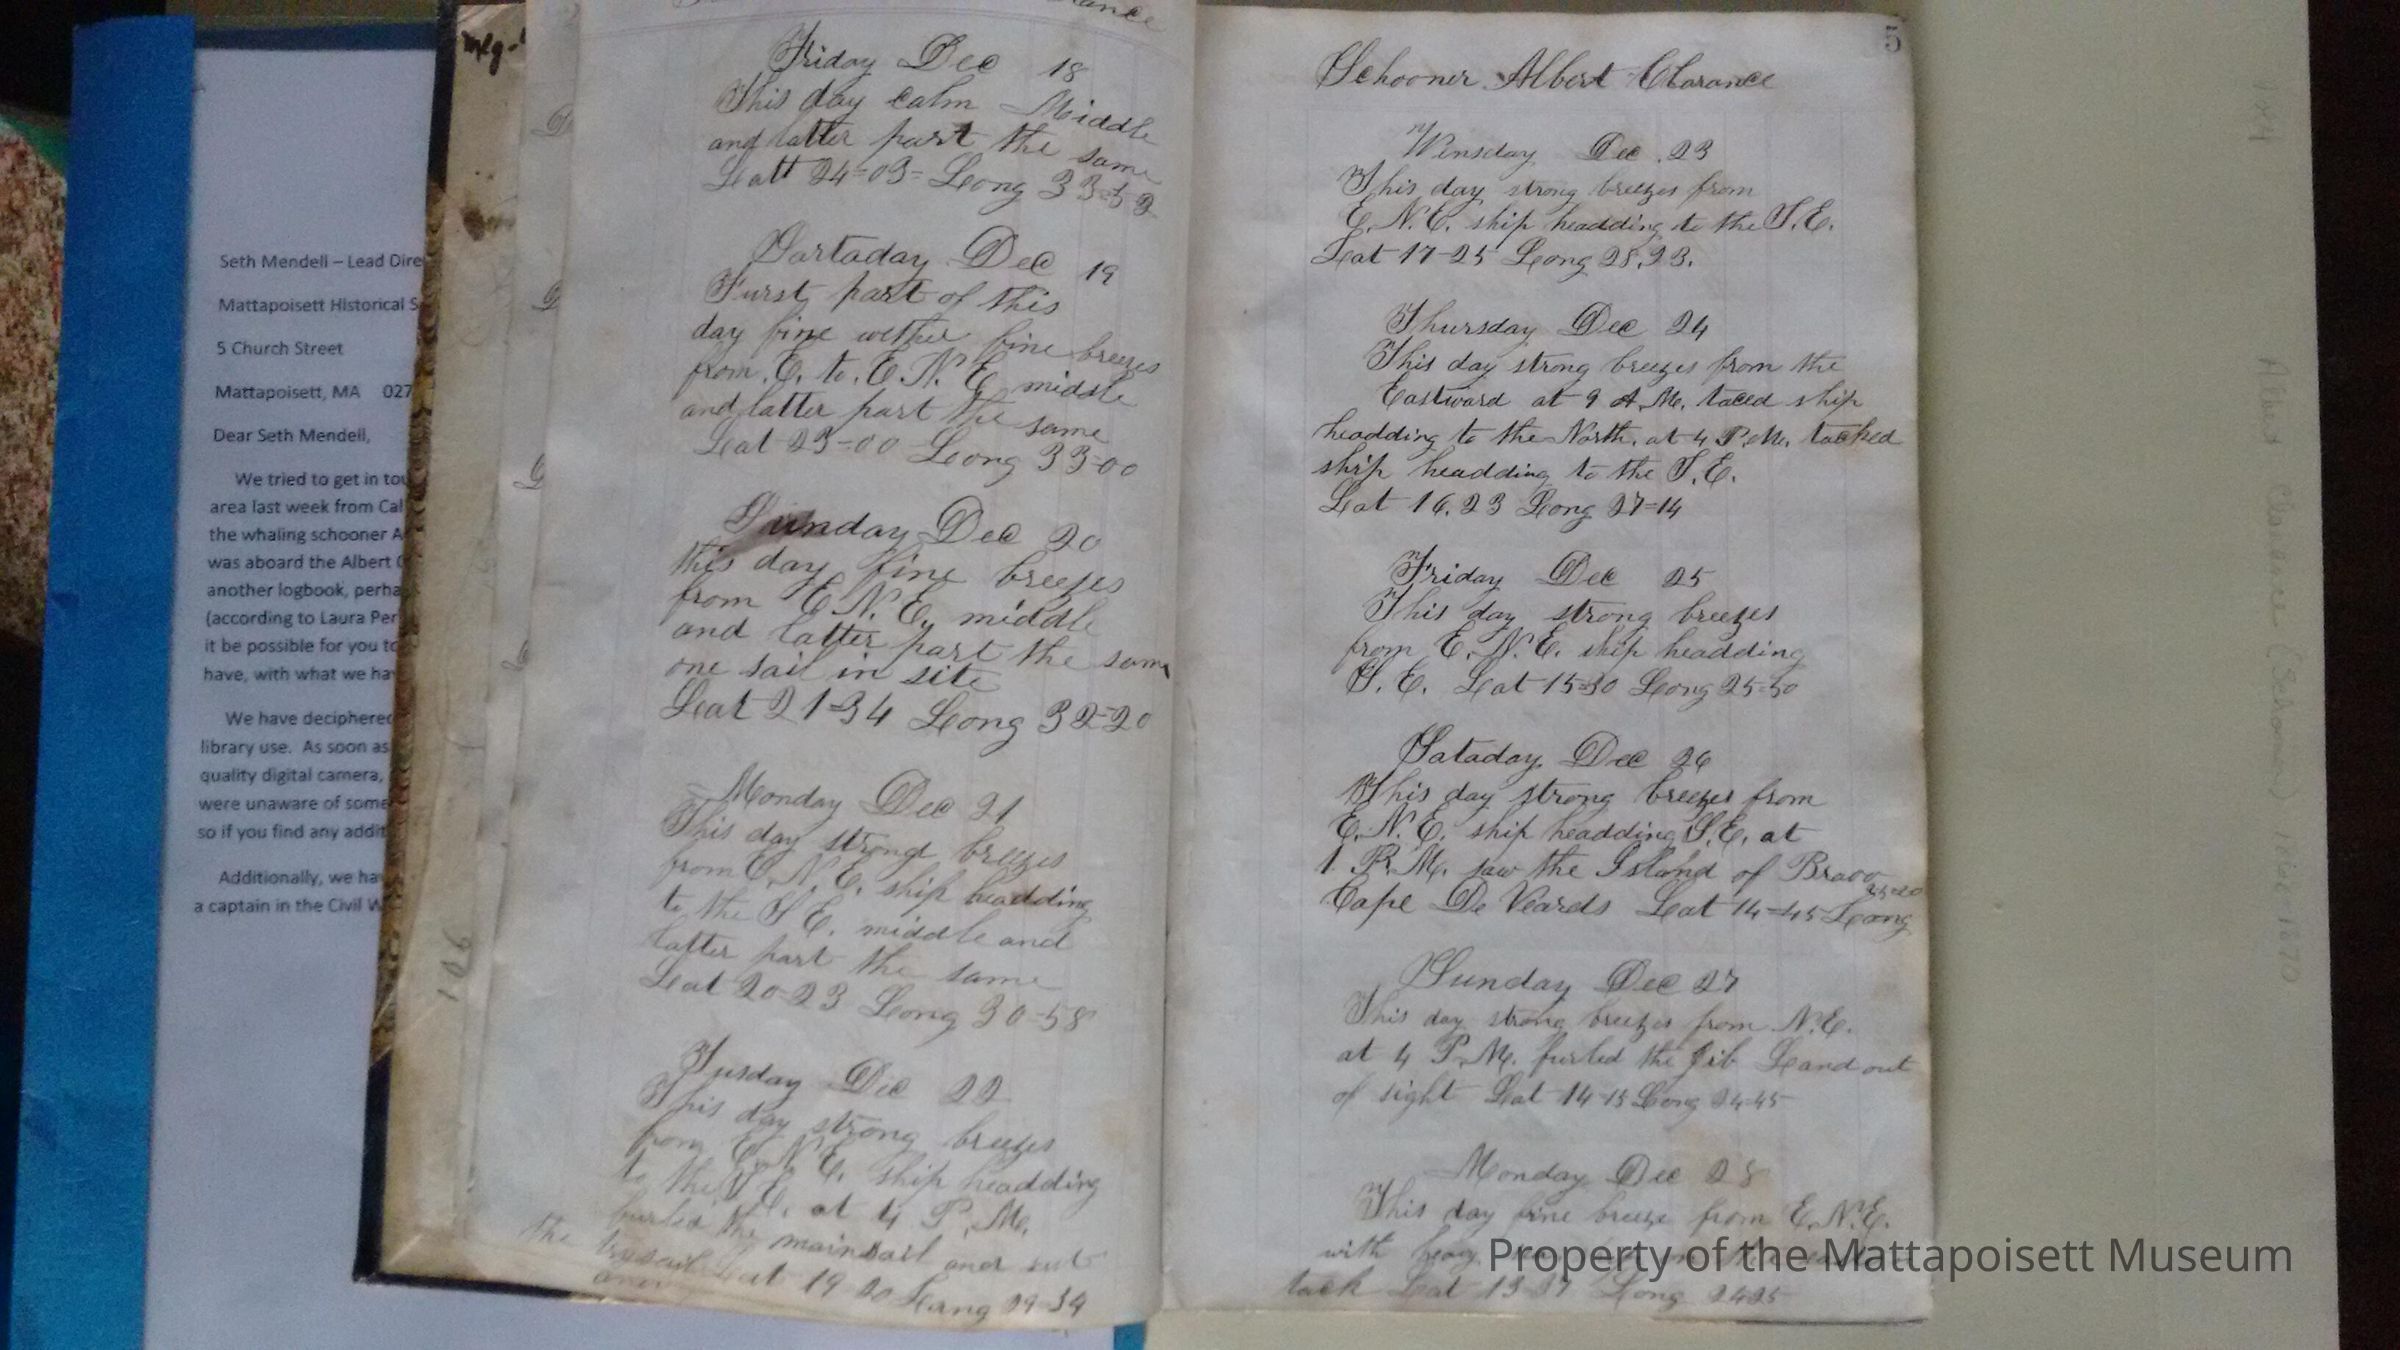 Seth Mendell – Lead Dire
Mattapoisett Historical S
5 Church Street
Mattapoisett, MA 027
Dear Seth Mendell,
We tried to get in tou
area last week from Cal
the whaling schooner A
was aboard the Albert C
another logbook, perha
(according to Laura Per
it be possible for you to
have, with what we ha
We have deciphered
library use. As soon as
quality digital camera,
were unaware of some
so if you find any addit
Additionally, we ha
a captain in the Civil W
106
Friday Dec 18
This day calm Middle
and latter part the same
Latt 24=03= Long 33=53
Sartaday Dec 19
Furst part of this
day fine wether fine breezes
from E. to E.N.E. middle
and latter part the same
Lat 23=00 Long 33=00
Sunday Dec 20
this day fine breezes
from E.N.E. middle
and latter part the same
one sail in site
Lat 21=34 Long 32=20
Monday Dec 21
This day strong breezes
from E.N.E. ship headding
to the S E. middle and
latter part the same
Lat 20=23 Long 30=58
Tusday Dec 22
This day strong breezes
from E.N.E. ship headding
to the S.E. at 4 P.M.
furled the mainsail and sut
the trysail Lat 19 20 Long 29=34
5
Schooner Albert Clarance
Winsday Dec. 23
This day strong breezes from
E.N.E. ship headding to the S.E.
Lat 17=25 Long 28.23.
Thursday Dec 24
This day strong breezes from the
Eastward at 9 A.M. taced ship
headding to the North. at 4 P.M. tacked
ship headding to the S.E.
Lat 16.23 Long 27=14
Friday Dec 25
This day strong breezes
from E.N.E. ship headding
S.E. Lat 15=30 Long 25=50
Sataday Dec 26
This day strong breezes from
E.N.E. ship headding S.E. at
1 P.M. saw the Island of Bravo
Cape De Veards Lat 14=45 Long 25=20
Sunday Dec 27
This day strong breezes from N.E.
at 4 P.M. furled the Jib Land out
of sight Lat 14-15 Long 24=45
Monday Dec 28
This day fine breeze from E.N.E.
with heavy sea
tack Lat 13=37 Long 24=25
Property of the Mattapoisett Museum